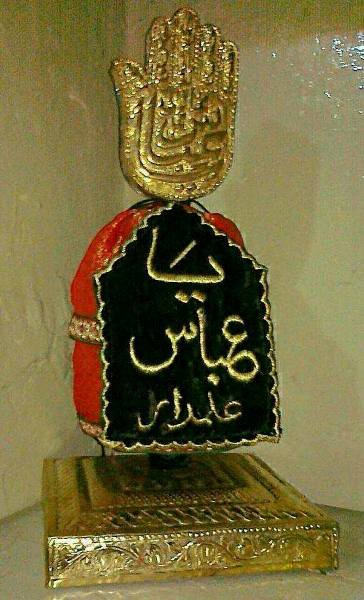 یا
عباس
علمدار